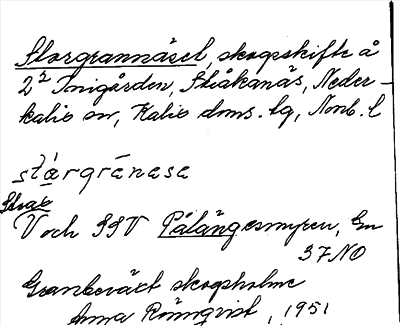 Storgrannäset, skogsskifte å
2² Inigården, Stråkanäs, Neder-
kalix sn, Kalix doms. lg, Norrb. l
stárgránasa
Strax
V och SSV Pålängesmyren, Gn
37 NO
Granbeväxt skogsholme
Anna Rönnqvist, 1951